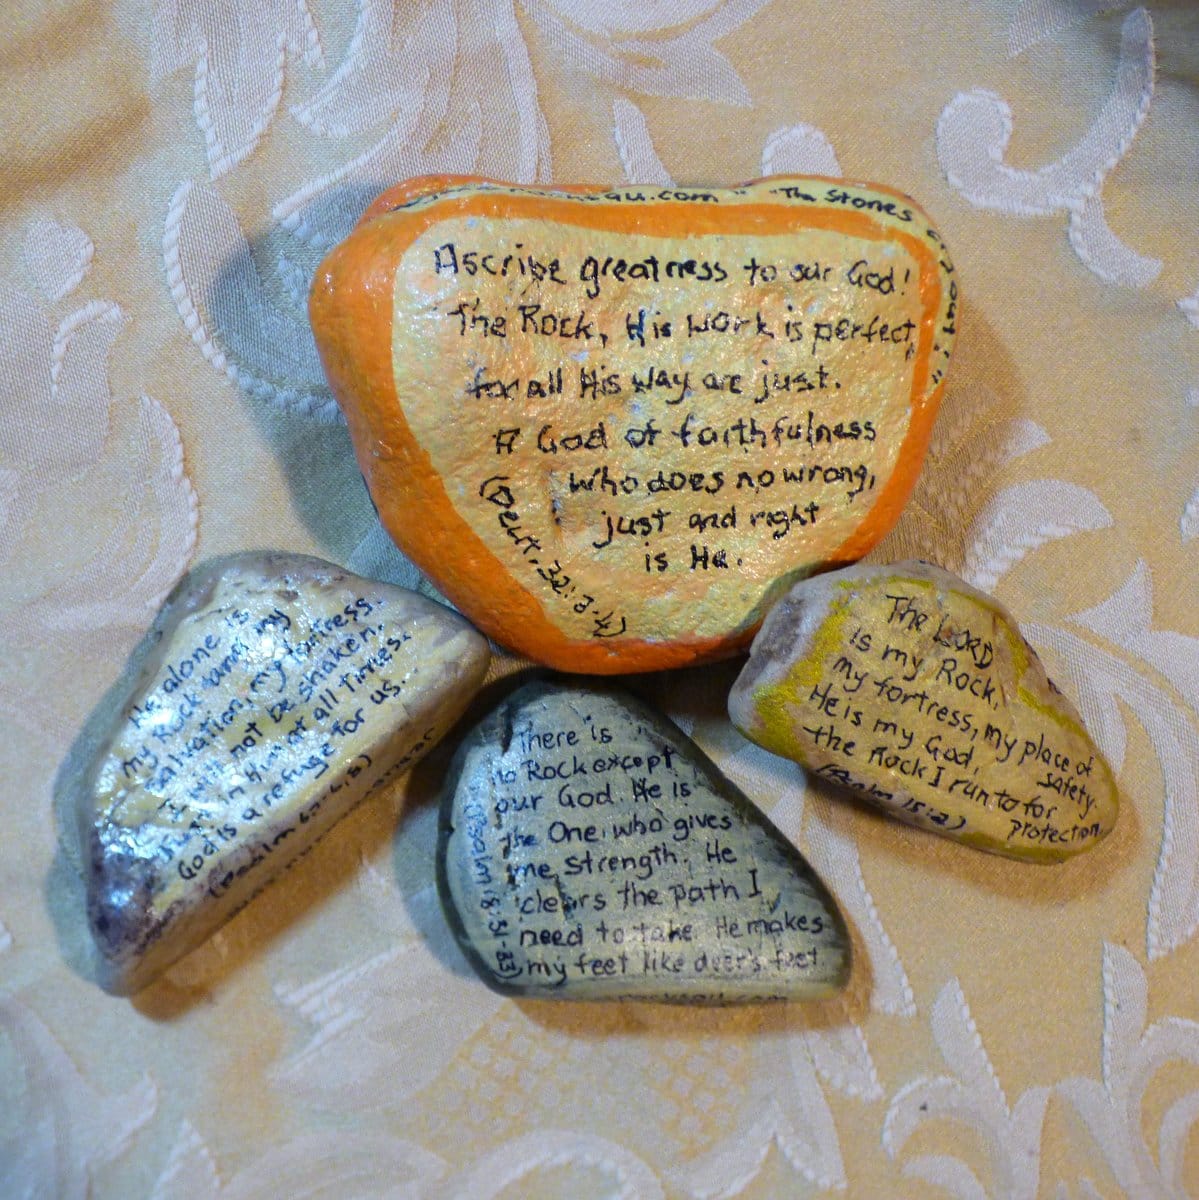 "The Stones
Ascribe greatness to our God!
The Rock, His work is perfect,
for all His way are just.
A God of faithfulness
who does no wrong,
just and right
is He.
(Deut. 32:3-4)
He alone is
my Rock and my
salvation, my fortress.
I will not be shaken.
in Him at all times.
God is a refuge for us.
(Psalm
There is
no Rock except
our God. He is
the One who gives
me strength. He
clears the path I
need to take. He makes
my feet like deer's feet.
(Psalm 18:31-33)
The LORD
is my Rock,
my fortress, my place of
safety.
He is my God,
the Rock I run to for
protection.
(Psalm